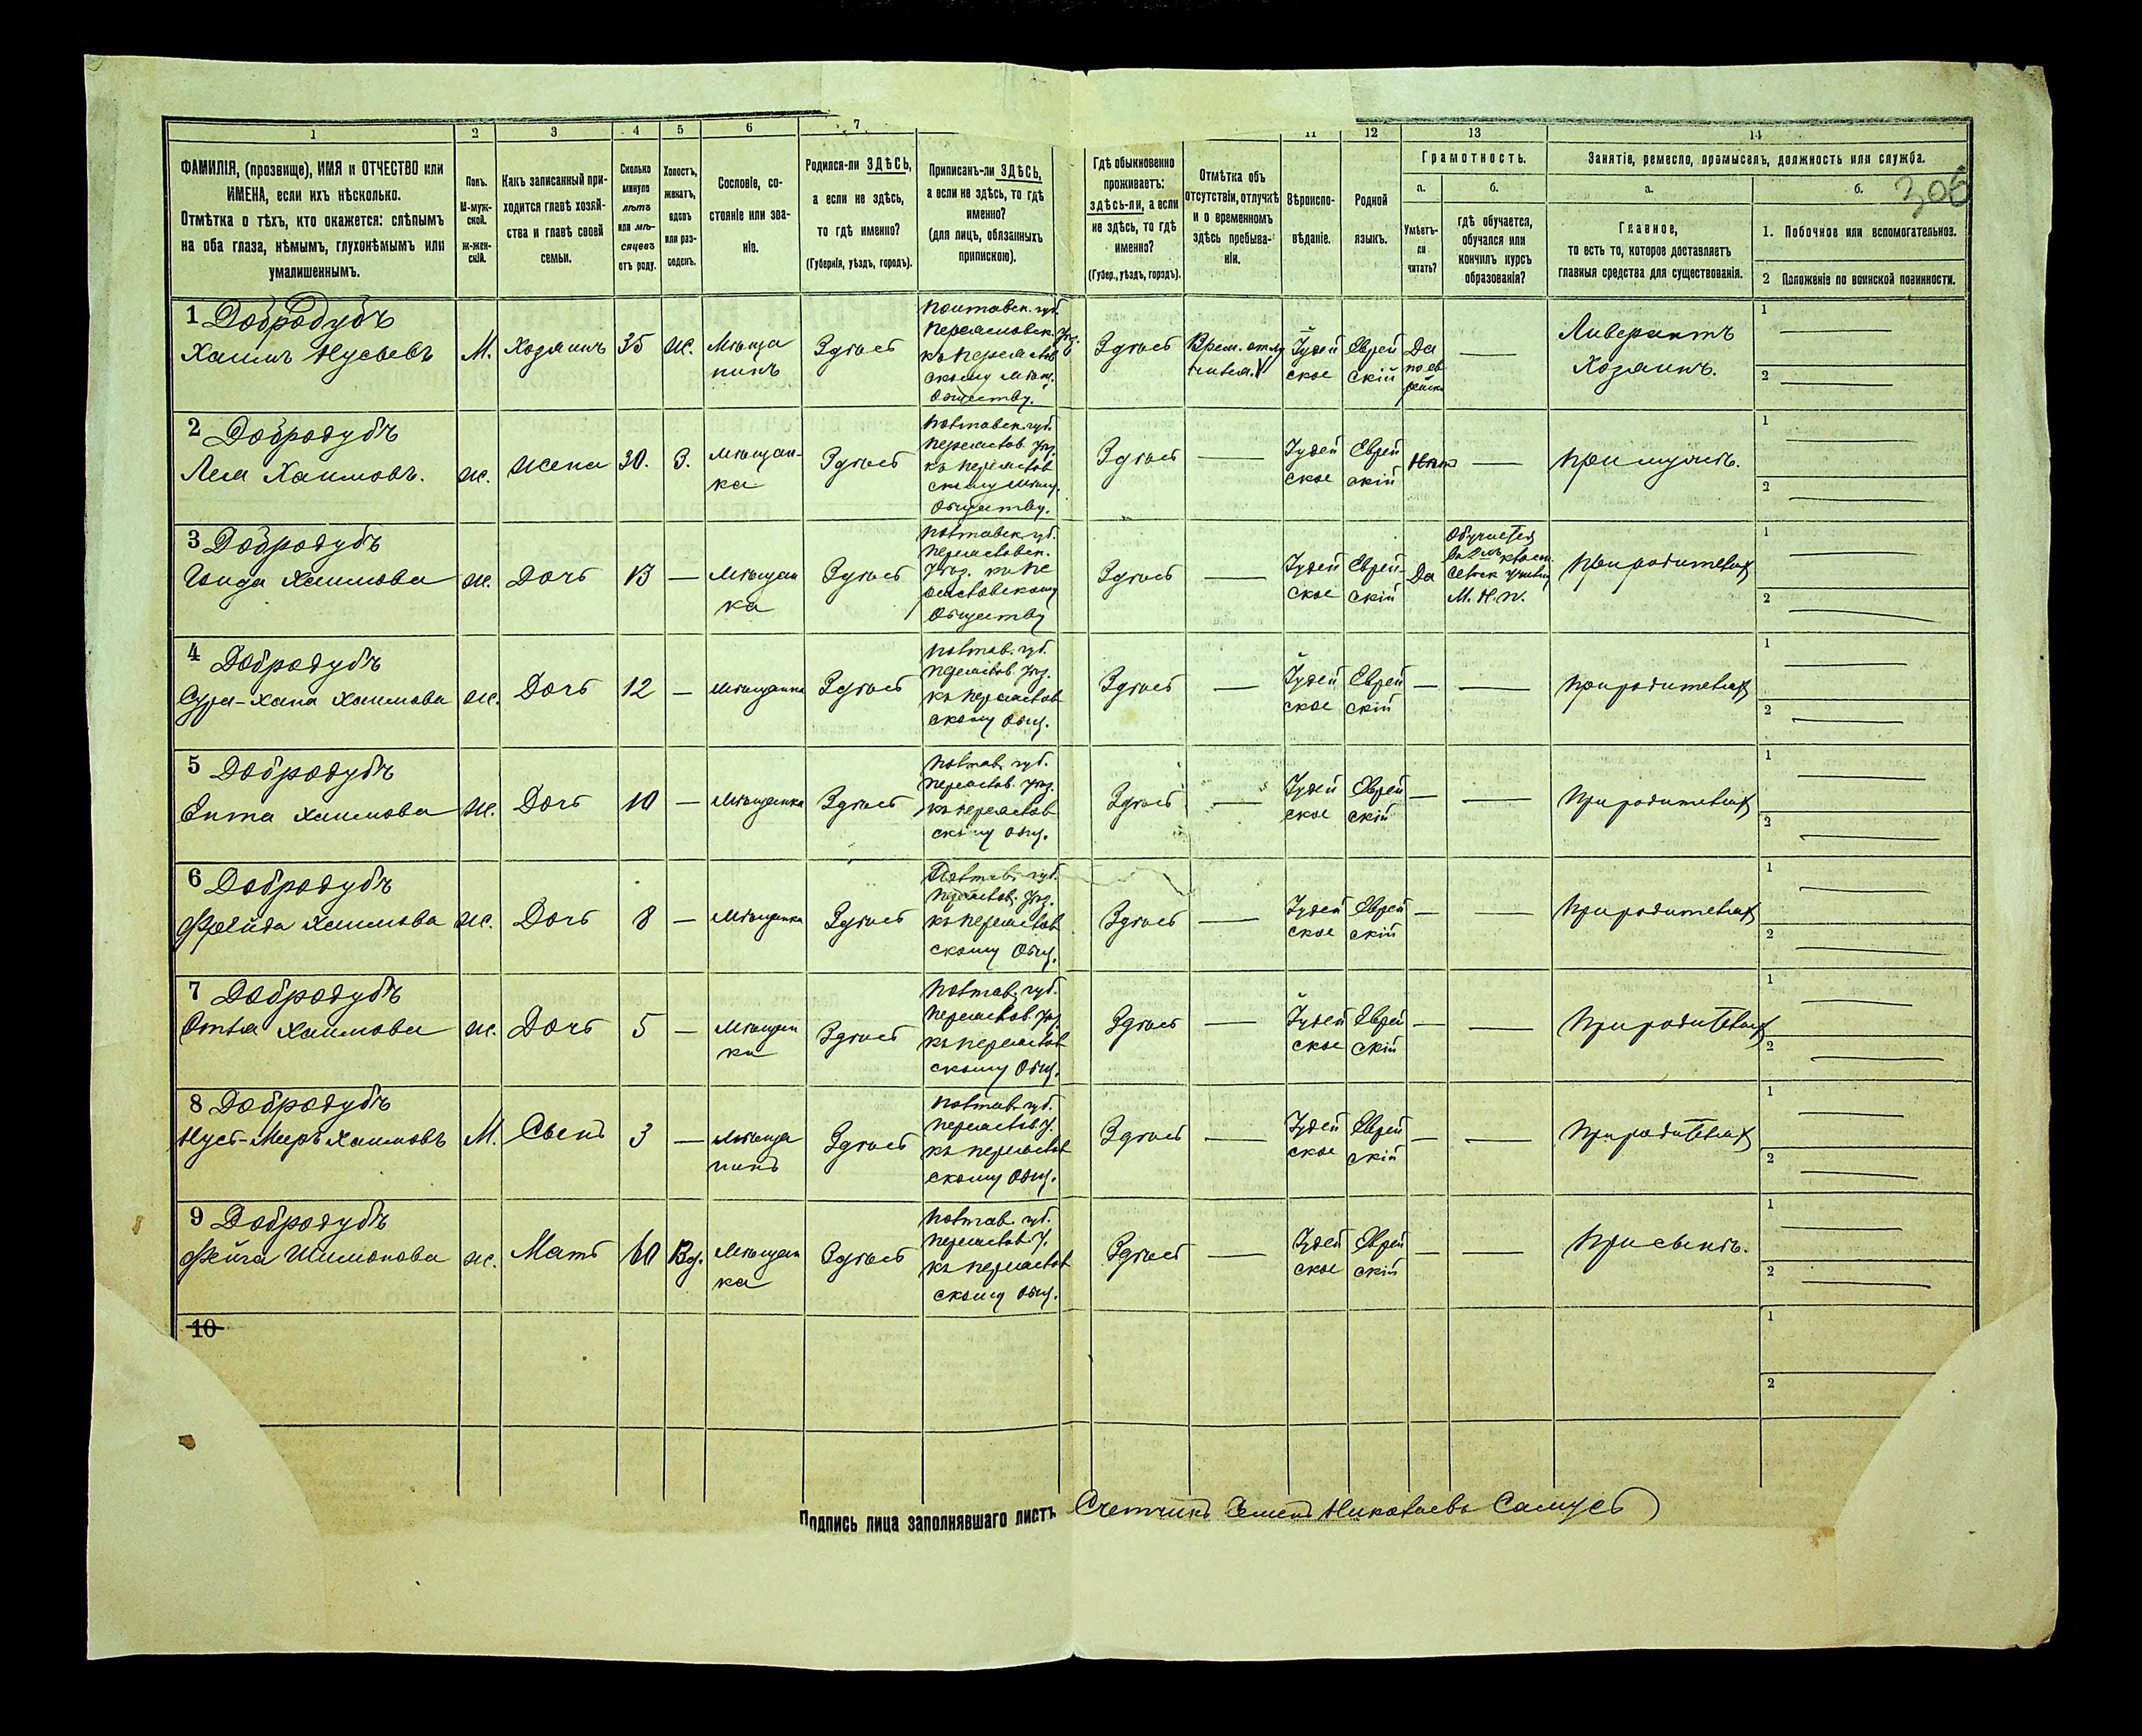 1
2
3
4
5
6
7
11
12
13
14
ФАМИЛІЯ, (прозвище), ИМЯ и ОТЧЕСТВО или
ИМЕНА, если ихъ нѣсколько.
Отмѣтка о тѣхъ, кто окажется: слѣпымъ
на оба глаза, нѣмымъ, глухонѣмымъ или
умалишеннымъ.
Полъ.
М-муж-
ской.
ж-жен-
скій.
Какъ записанный при-
ходится главѣ хозяй-
ства и главѣ своей
семьи.
Сколько
минуло
лѣтъ
или мѣ-
сяцевъ
отъ роду.
Холостъ,
женатъ,
вдовъ
или раз-
веденъ.
Сословіе, со-
стояніе или зва-
ніе.
Родился-ли ЗДѢСЬ,
а если не здѣсь,
то гдѣ именно?
(Губернія, уѣздъ, городъ).
Приписанъ-ли ЗДѢСЬ,
а если не здѣсь, то гдѣ
именно?
(для лицъ, обязанныхъ
припискою).
Гдѣ обыкновенно
проживаетъ:
здѣсь-ли, а если
не здѣсь, то гдѣ
именно?
(Губер., уѣздъ, городъ).
Отмѣтка объ
отсутствіи, отлучкѣ
и о временномъ
здѣсь пребыва-
ніи.
Вѣроиспо-
вѣданіе.
Родной
языкъ.
Грамотность.
а.
Умѣетъ-
ли
читать?
б.
гдѣ обучается,
обучался или
кончилъ курсъ
образованія?
Занятіе, ремесло, промыселъ, должность или служба.
а.
Главное,
то есть то, которое доставляетъ
главныя средства для существованія.
б.
306
1. Побочное или вспомогательное.
2 Положеніе по воинской повинности.
1 Добродубъ
Хаимъ Нусьевъ
М.
Хозяинъ
35
ж.
Мѣща
нинъ
Здѣсь
Полтавск. губ.
Переяславск. уѣз.
къ Переяслав
скому мѣщ.
Обществу.
Здѣсь
Врем. отлу
чился.
Іудей
ское
Еврей
скій
Да
по ев
рейски
Ливерантъ
Хозяинъ.
1
2
2 Добродубъ
Лея Хаимовъ.
ж.
жена
30.
З.
мѣщан-
ка
Здѣсь
Полтавск. губ.
Переяслав. уѣз.
къ Переяслав
скому мѣщ.
Обществу.
Здѣсь
Іудей
ское
Еврей
скій
Нѣтъ
При мужѣ.
1
2
3 Добродубъ
Хаимова
ж.
Дочь
13
Мѣщан
ка
Здѣсь
Полтавск. губ.
Переяславск.
уѣз. къ Пе
реяславскому
Обществу
Здѣсь
Іудей
ское
Еврей-
скій
Да
Обучается
М. Н. П.
При родителяхъ
1
2
4 Добродубъ
Сура-Хана Хаимова
ж.
Дочь
12
мѣщанка
Здѣсь
Полтав. губ.
Переяслав. уѣз.
къ Переяслав
скому Общ.
Здѣсь
Іудей
ское
Еврей
скій
При родителяхъ
1
2
5 Добродубъ
Ента Хаимова
ж.
Дочь
10
мѣщанка
Здѣсь
Полтав. губ.
Переяслав. уѣз.
къ Переяслав
скому Общ.
Здѣсь
Іудей
ское
Еврей
скій
При родителяхъ
1
2
6 Добродубъ
Фрейда Хаимова
ж.
Дочь
8
мѣщанка
Здѣсь
Полтав. губ.
Переяслав. уѣз.
къ Переяслав
скому Общ.
Здѣсь
Іудей
ское
Еврей
скій
При родителяхъ
1
2
7 Добродубъ
Хаимова
ж.
Дочь
5
Мѣщан
ка
Здѣсь
Полтав. губ.
Переяслав. уѣз.
къ Переяслав
скому Общ.
Здѣсь
Іудей
ское
Еврей
скій
При родителяхъ
1
2
8 Добродубъ
Нусь-Меиръ Хаимовъ
М.
Сынъ
3
мѣща
нинъ
Здѣсь
Полтав. губ.
Переяслав. у.
къ Переяслав
скому Общ.
Здѣсь
Іудей
ское
Еврей
скій
При родителяхъ
1
2
9 Добродубъ
Фейга Шимонова
ж.
Мать
60
Вд.
Мѣщан
ка
Здѣсь
Полтав. губ.
Переяслав. у.
къ Переяслав
скому Общ.
Здѣсь
Іудей
ское
Еврей
скій
При сынѣ.
1
2
10
1
2
Подпись лица заполнявшаго листъ Счетчикъ Семенъ Николаевъ Самусь